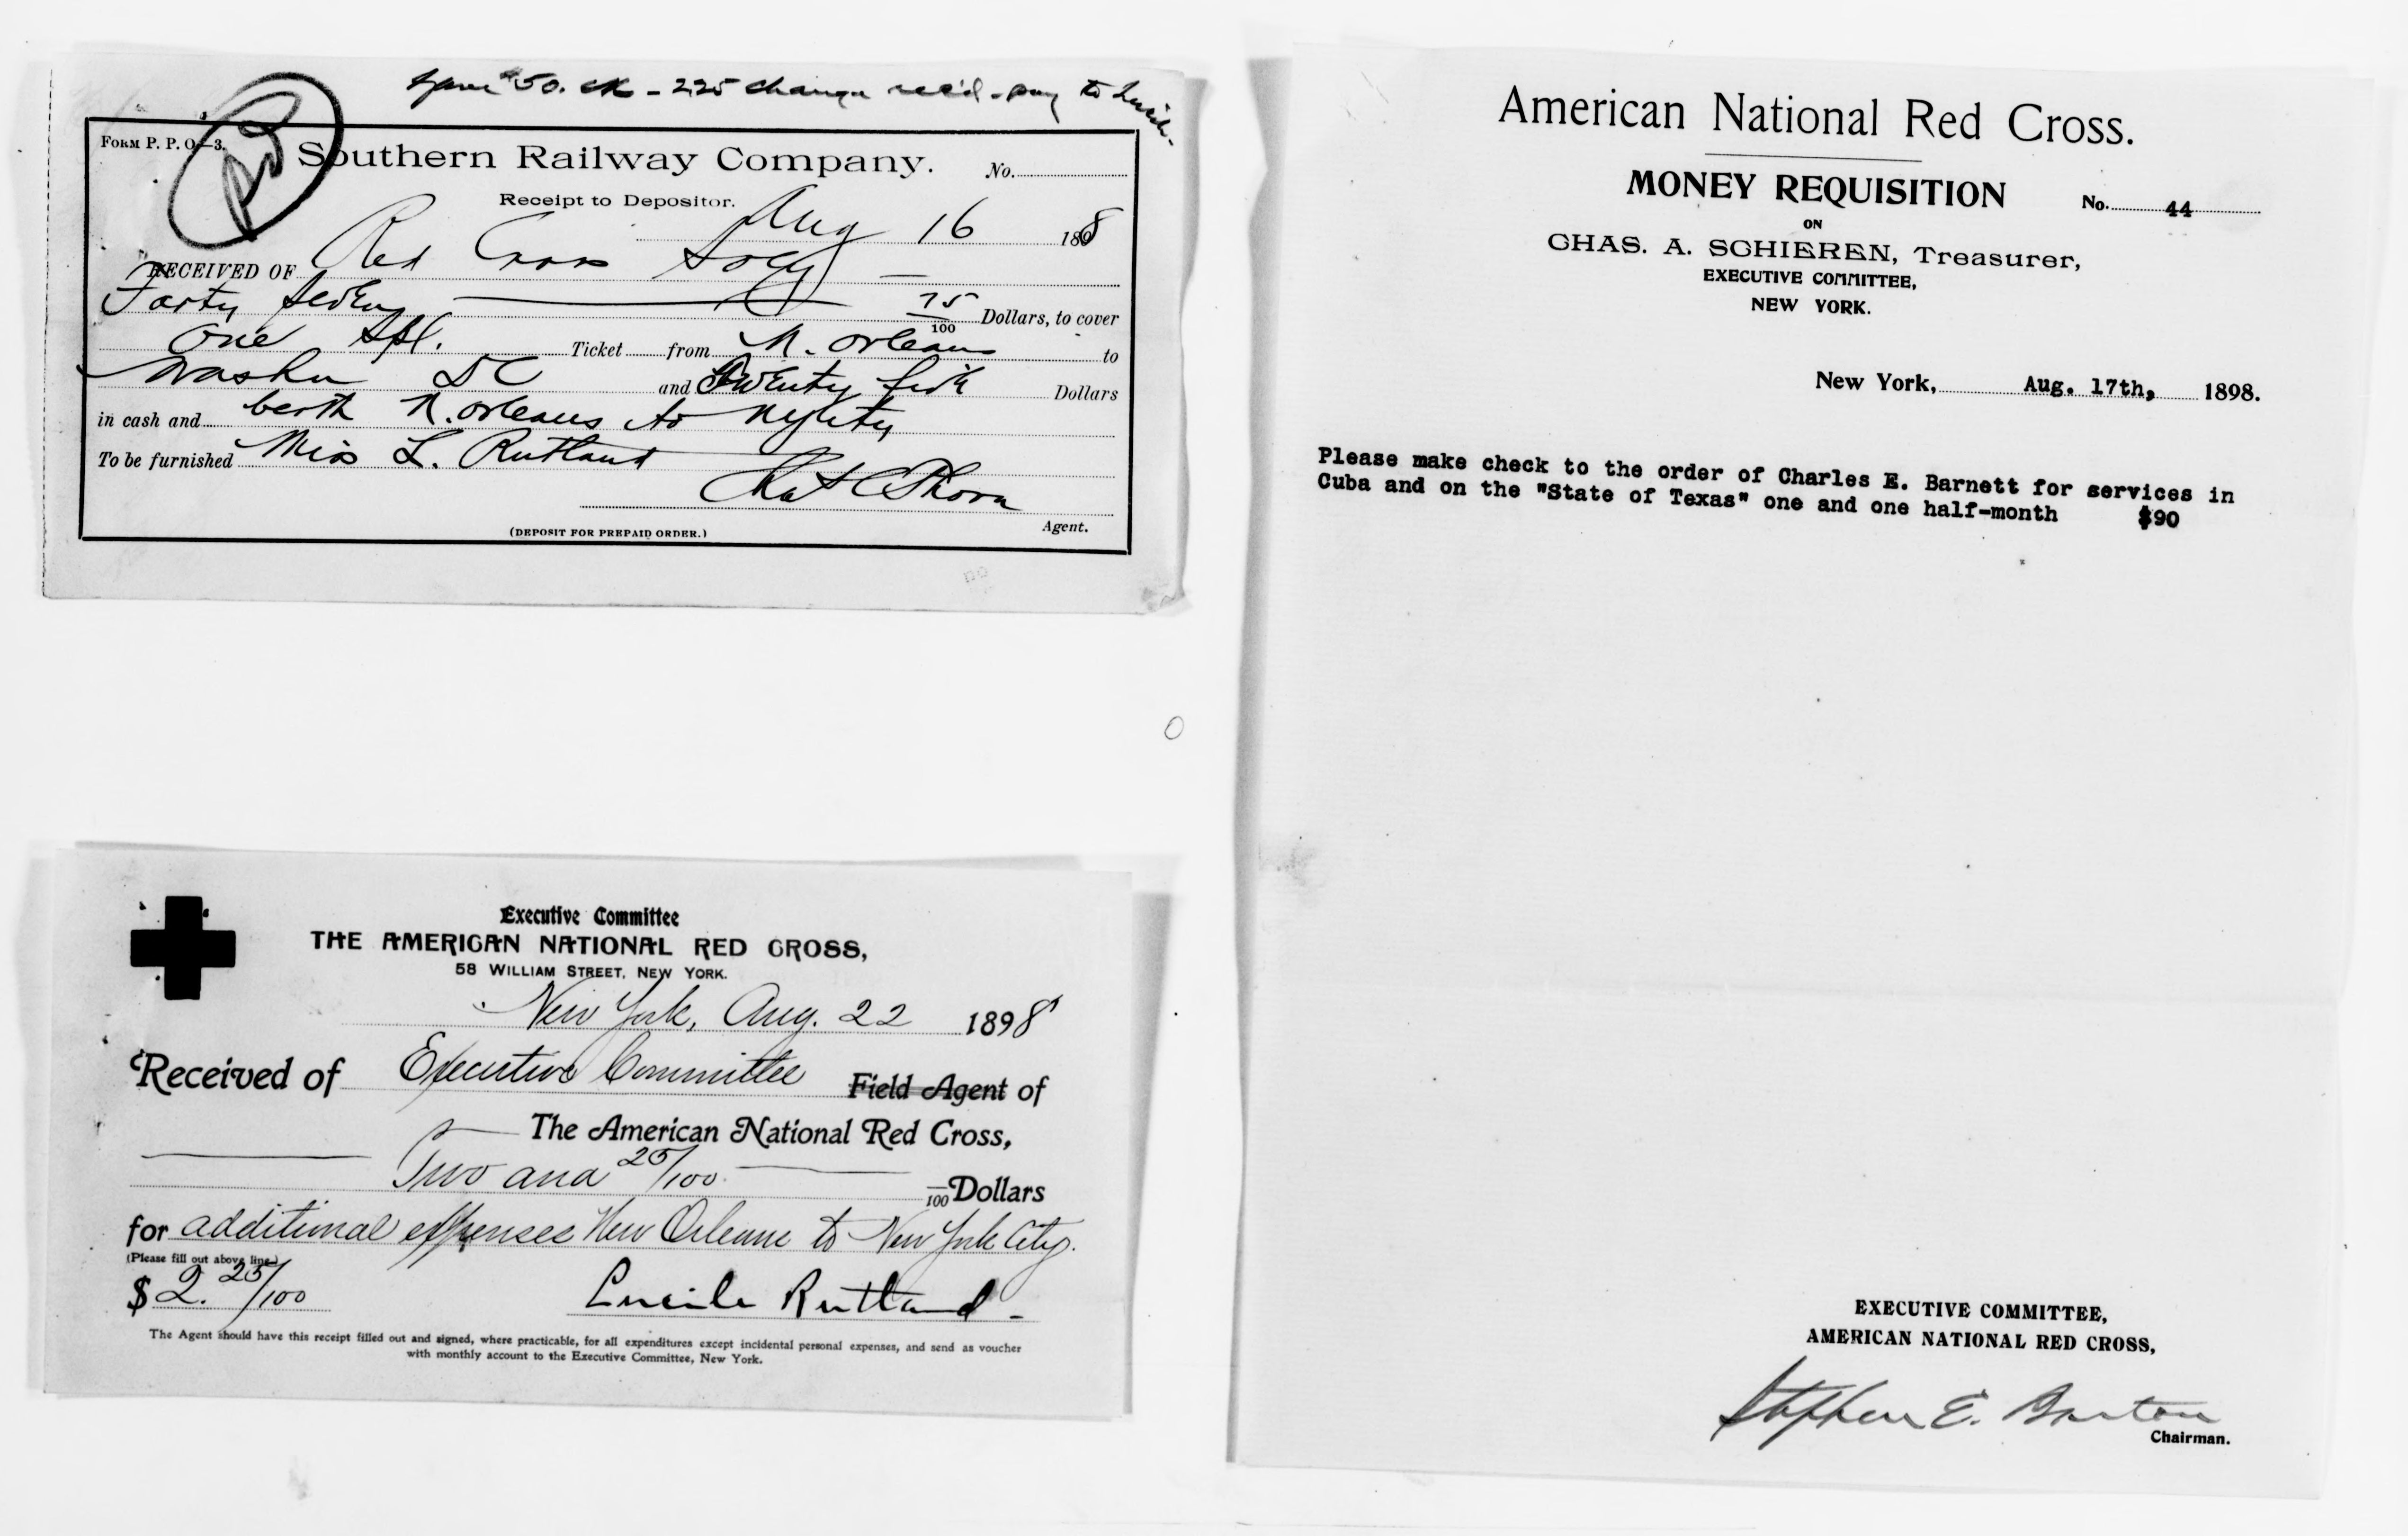 $50. ck - 2.25 change rec'd - pay to Lucile-
FORM P. P. O.-3.
Southern Railway Company.
No.
Receipt to Depositor.
Aug 16 1898
RECEIVED OF Red Cross Socy
Forty Seven 75/100 Dollars, to cover
One Ticket from N. Orleans to
Washn DC and Twenty five Dollars
in cash and berth N. Orleans to
To be furnished Miss L. Rutland
Agent.
(DEPOSIT FOR PREPAID ORDER.)
Executive Committee
THE AMERICAN NATIONAL RED CROSS,
58 WILLIAM STREET, NEW YORK.
New York, Aug. 22 1898
Received of Executive Committee Field Agent of
The American National Red Cross,
Two and 25/100 /100 Dollars
for additional expenses New Orleans to New York City.
(Please fill out above line)
$ 2. 25/100 Lucile Rutland-
The Agent should have this receipt filled out and signed, where practicable, for all expenditures except incidental personal expenses, and send as voucher
with monthly account to the Executive Committee, New York.
American National Red Cross.
MONEY REQUISITION
No. 44
ON
CHAS. A. SCHIEREN, Treasurer,
EXECUTIVE COMMITTEE,
NEW YORK.
New York, Aug. 17th, 1898.
Please make check to the order of Charles E. Barnett for services in
Cuba and on the "State of Texas" one and one half-month $90
EXECUTIVE COMMITTEE,
AMERICAN NATIONAL RED CROSS,
Stephen E. Barton
Chairman.